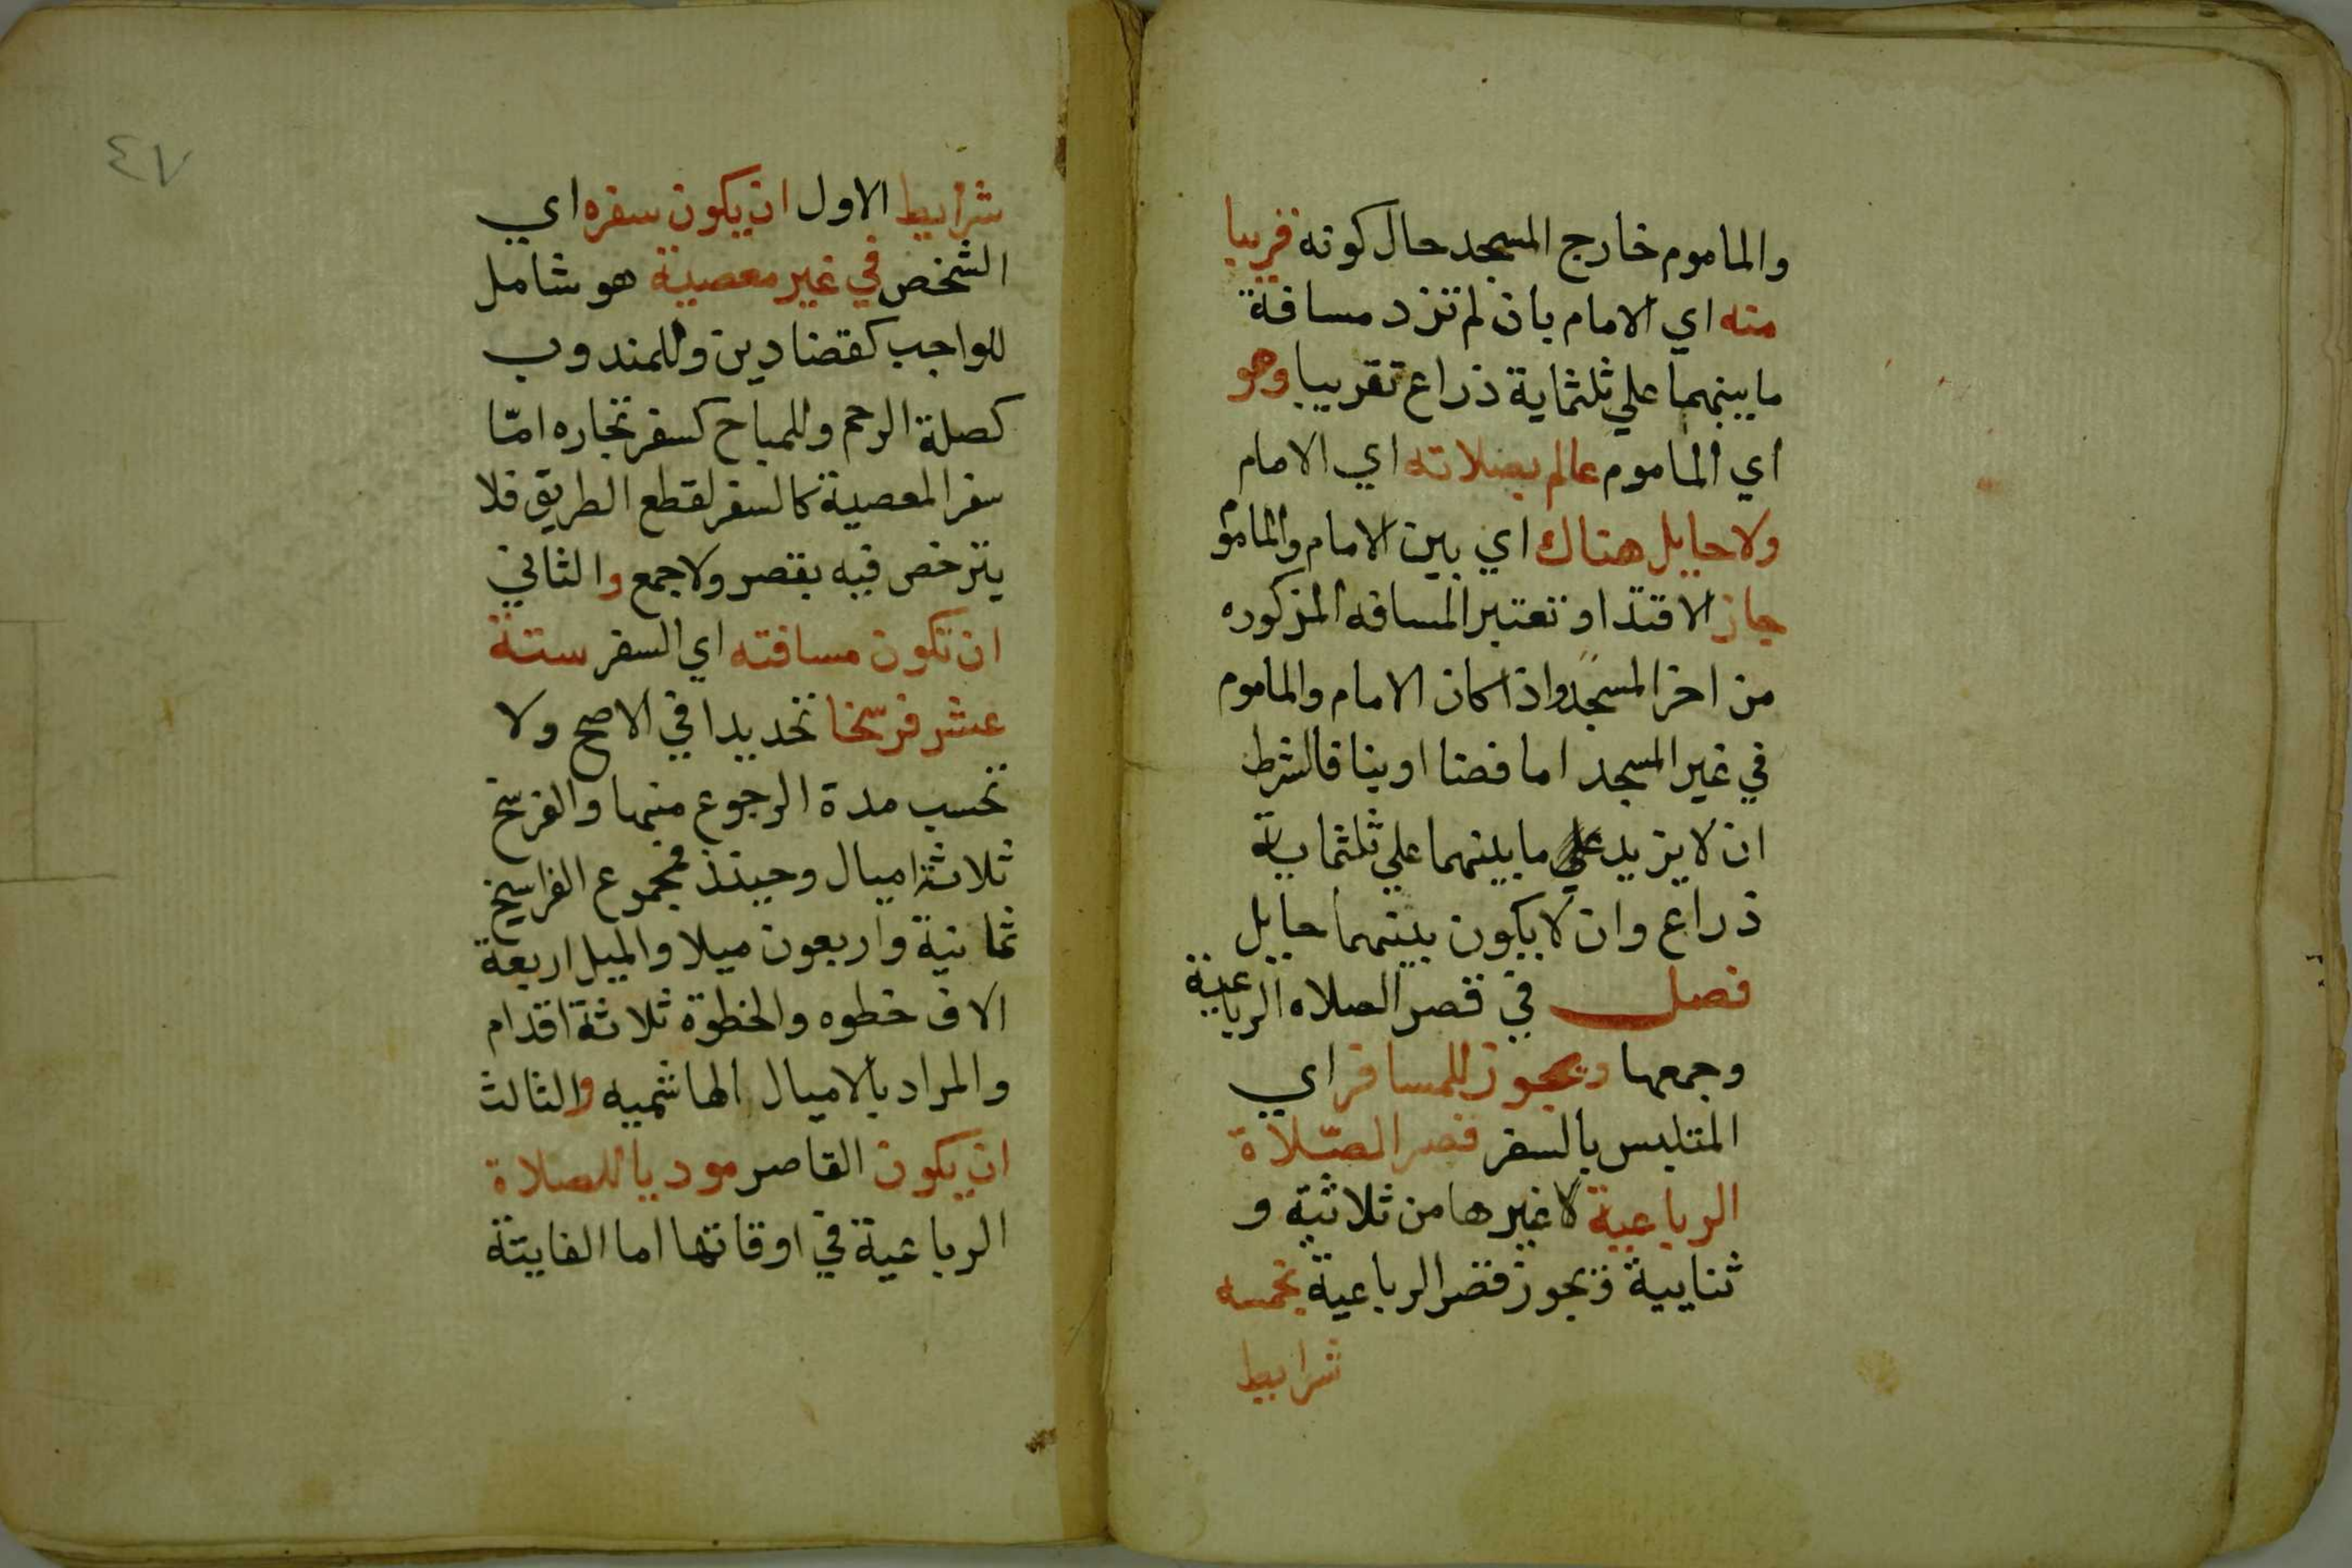 والماموم خارج المسجد حال كونه قريبا
منه اي الامام بان لم تزد مسافة
ما بينهما علي ثلثماية ذراع تقريبا وهو
اي الماموم عالم بصلاته اي الامام
ولا حايل هناك اي بين الامام والماموم
جاز الاقتدا وتعتبر المسافه المذكوره
من اخر المسجد واذا كان الامام والماموم
في غير المسجد اما فضا او بنا فالشرط
ان لا يزيد ما بينهما علي ثلثماية
ذراع وان لا يكون بينهما حايل
فصل في قصر الصلاه الرباعية
وجمعها ويجوز للمسافر اي
المتلبس بالسفر قصر الصّلاة
الرباعية لا غيرها من ثلاثية و
ثنايية ويجوز قصر الرباعية بخمسه
شرايط
٤٧
شرايط الاول ان يكون سفره اي
الشخص في غير معصية هو شامل
للواجب كقضا دين وللمندوب
كصلة الرحم وللمباح كسفر تجاره امّا
سفر المعصية كالسفر لقطع الطريق فلا
يترخص فيه بقصر ولا جمع والثاني
ان تكون مسافته اي السفر ستة
عشر فرسخا تحديدا في الاصح ولا
تحسب مدة الرجوع منها والفرسخ
ثلاثة اميال وحينئذ فمجموع الفراسخ
ثمانية واربعون ميلا والميل اربعة
الاف خطوه والخطوة ثلاثة اقدام
والمراد بالاميال الهاشميه والثالث
ان يكون القاصر موديا للصلاة
الرباعية في اوقاتها اما الفايتة